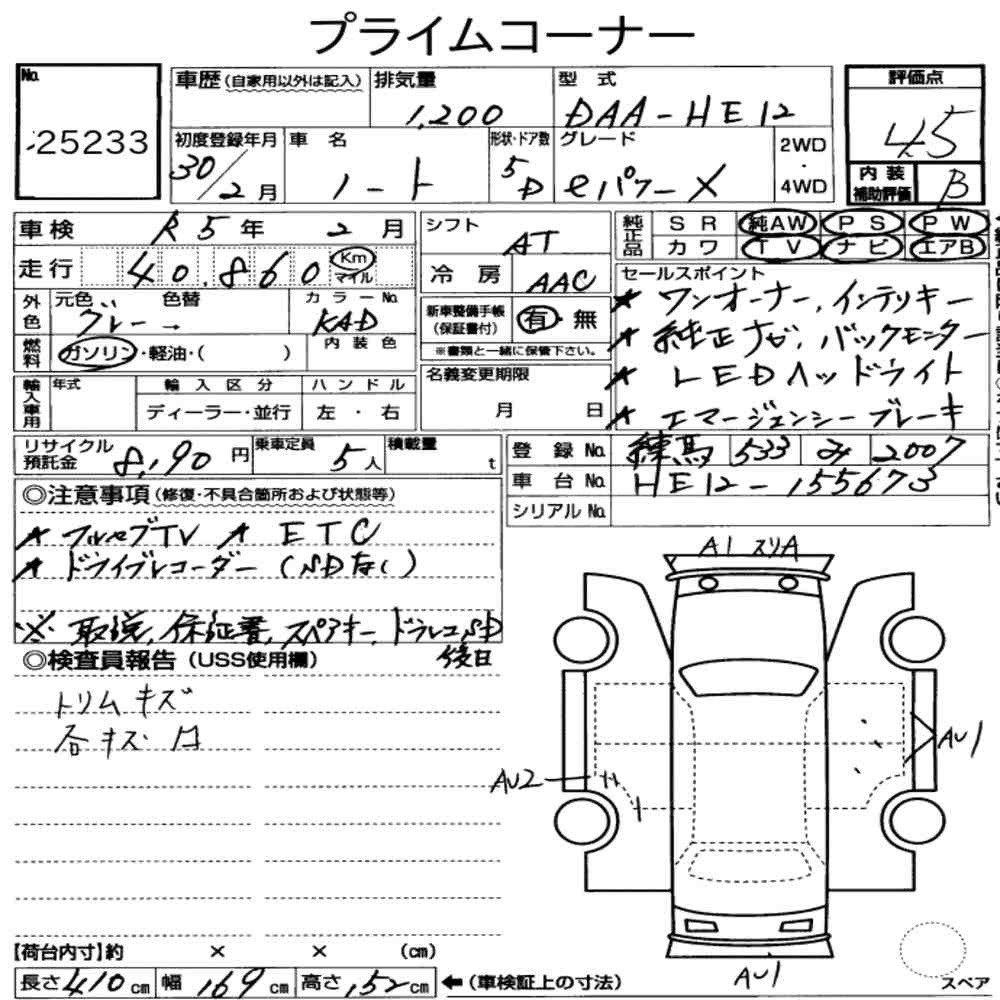 プライムコーナー
No. 25233
車歴(自家用以外は記入) 排気量 1,200 型式 DAA-HE12
初度登録年月 30/2月 車名 ノート 形状・ドア数 5D グレード eパワーX 2WD・4WD
評価点 4.5
内装補助評価 B
車検 R5年 2月
走行 40,860 Km マイル
外色 元色 グレー → 色替 カラーNo. KAD
燃料 ガソリン・軽油・( ) 内装色
輸入車用 年式 輸入区分 ディーラー・並行 ハンドル 左・右
シフト AT
冷房 AAC
新車整備手帳(保証書付) 有・無
※書類と一緒に保管下さい。
名義変更期限 月 日
純正品 SR 純AW PS PW
カワ TV ナビ エアB
セールスポイント
★ ワンオーナー、インテリキー
★ 純正ナビ、バックモニター
★ LEDヘッドライト
★ エマージェンシーブレーキ
リサイクル預託金 8,190円 乗車定員 5人 積載量 t
登録No. 練馬 533 み 2007
車台No. HE12-155673
シリアルNo.
◎注意事項(修復・不具合箇所および状態等)
★ フルセグTV ★ ETC
★ ドライブレコーダー (SDなし)
※ 取説、保証書、スペアキー、ドラレコSD
後日
◎検査員報告(USS使用欄)
トリムキズ
各キズ凹
A1 スリA
AU1
AU2
AU1
スペア
【荷台内寸】約 × × (cm)
長さ 410cm 幅 169cm 高さ 152cm ←(車検証上の寸法)